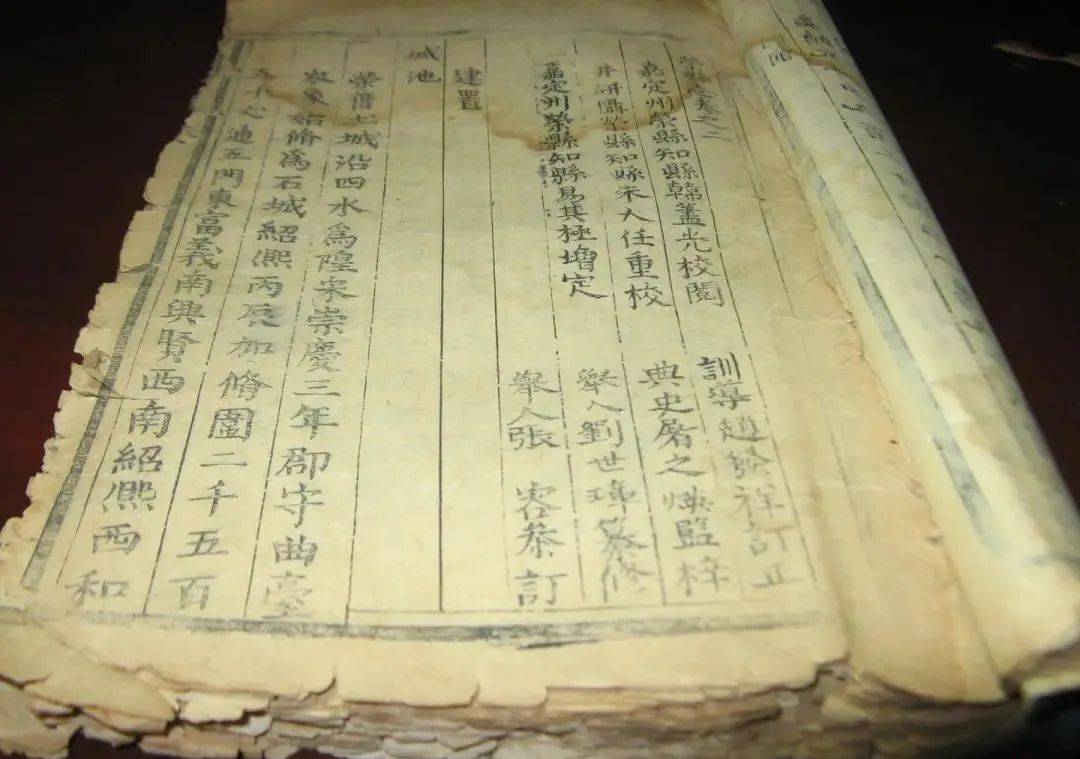 榮縣志卷之二
訓導趙發祥訂正
嘉定州榮縣知縣韓蓋光校閱
典史屠之煥監梓
井研攝榮縣知縣宋人任重校
舉人劉世璋纂修
嘉定州榮縣知縣易其極增定
舉人張容恭訂
建置
城池
榮舊土城沿四水為隍宋崇慶三年郡守曲
象始脩為石城紹熙丙辰加脩圍二千五百
五十 通五門東富義南興賢西南紹熙西和